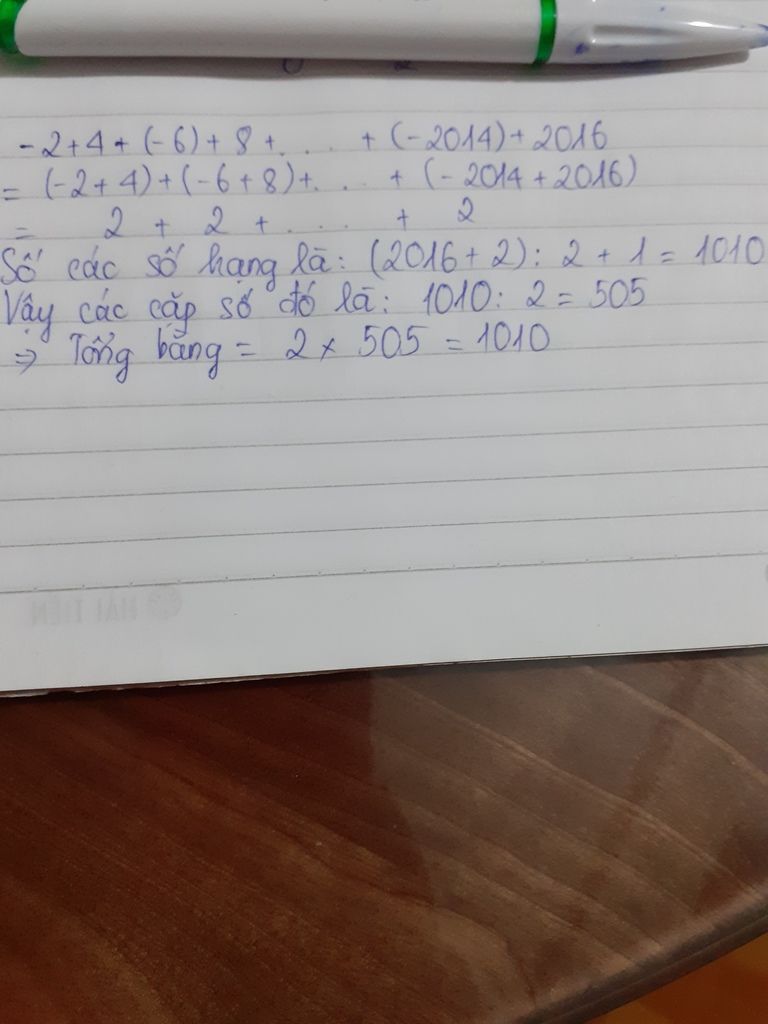 - 2 + 4 + (- 6) + 8 + . . . . + (- 2014) + 2016
= (-2 + 4) + (-6 + 8) + . . . + (- 2014 + 2016)
= 2 + 2 + . . . . + 2
Số các số hạng là: (2016 + 2) : 2 + 1 = 1010
Vậy các cặp số đó là: 1010 : 2 = 505
⇒ Tổng bằng = 2 × 505 = 1010
HẢI TIẾN